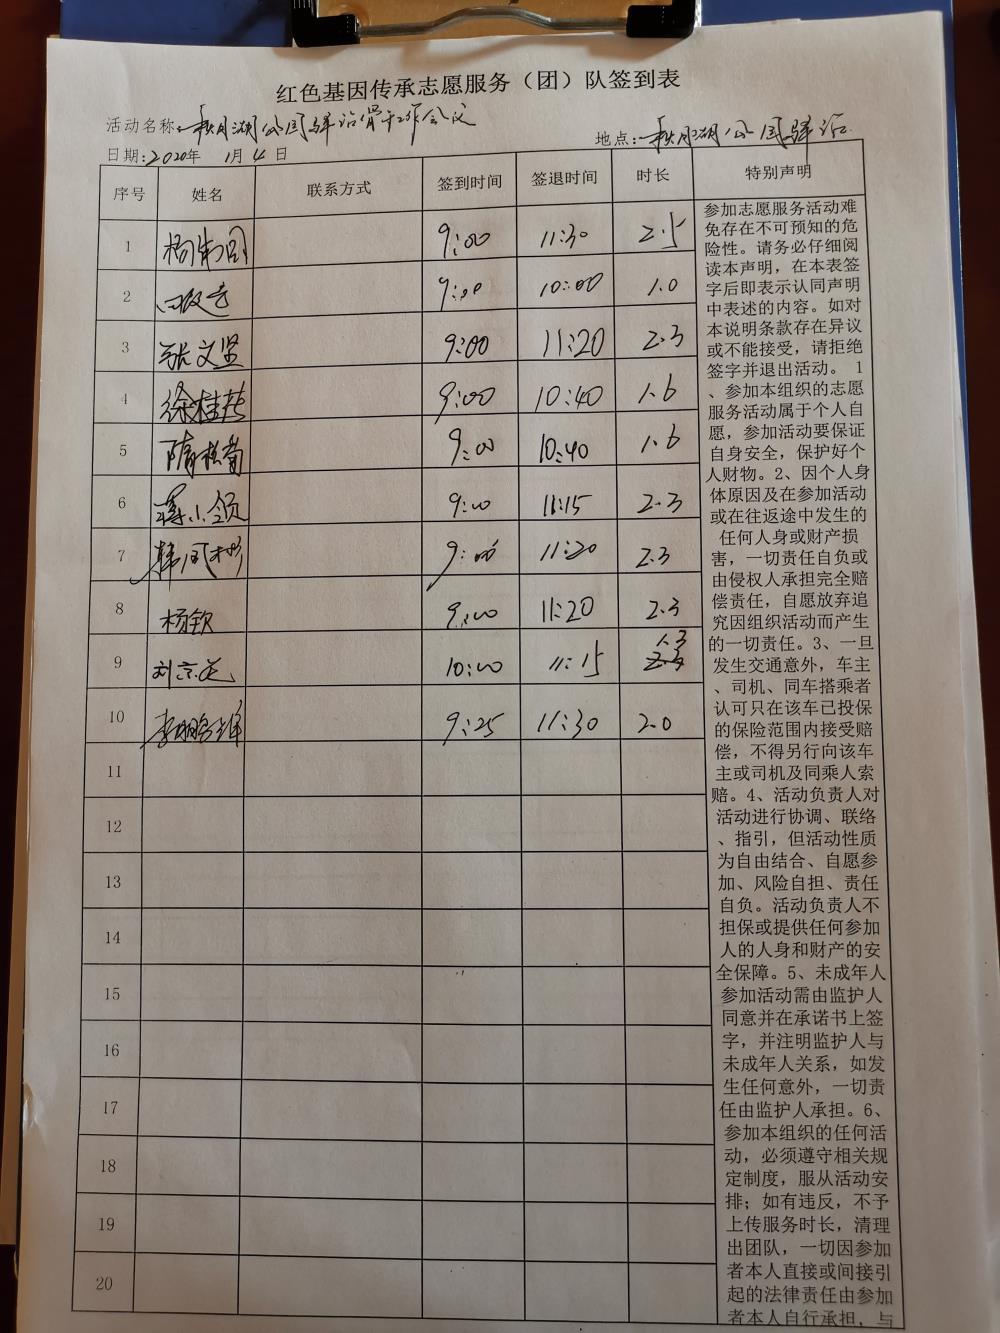 红色基因传承志愿服务（团）队签到表
活动名称：秋月湖公园驿站骨干工作会议
地点：秋月湖公园驿站
日期：2020年 1月 4日
序号 姓名 联系方式 签到时间 签退时间 时长 特别声明
1 9:00 11:30 2.5
2 9:00 10:00 1.0
3 张文坚 9:00 11:20 2.3
4 徐桂莲 9:00 10:40 1.6
5 隋松菊 9:00 10:40 1.6
6 蒋小领 9:00 11:15 2.3
7 韩凤彬 9:00 11:20 2.3
8 杨钦 9:00 11:20 2.3
9 刘京延 10:00 11:15 1.3
10 李鹏军 9:25 11:30 2.0
11
12
13
14
15
16
17
18
19
20
参加志愿服务活动难
免存在不可预知的危
险性。请务必仔细阅
读本声明，在本表签
字后即表示认同声明
中表述的内容。如对
本说明条款存在异议
或不能接受，请拒绝
签字并退出活动。 1
、参加本组织的志愿
服务活动属于个人自
愿，参加活动要保证
自身安全，保护好个
人财物。2、因个人身
体原因及在参加活动
或在往返途中发生的
任何人身或财产损
害，一切责任自负或
由侵权人承担完全赔
偿责任，自愿放弃追
究因组织活动而产生
的一切责任。3、一旦
发生交通意外，车主
、司机、同车搭乘者
认可只在该车已投保
的保险范围内接受赔
偿，不得另行向该车
主或司机及同乘人索
赔。4、活动负责人对
活动进行协调、联络
、指引，但活动性质
为自由结合、自愿参
加、风险自担、责任
自负。活动负责人不
担保或提供任何参加
人的人身和财产的安
全保障。5、未成年人
参加活动需由监护人
同意并在承诺书上签
字，并注明监护人与
未成年人关系，如发
生任何意外，一切责
任由监护人承担。6、
参加本组织的任何活
动，必须遵守相关规
定制度，服从活动安
排；如有违反，不予
上传服务时长，清理
出团队，一切因参加
者本人直接或间接引
起的法律责任由参加
者本人自行承担，与